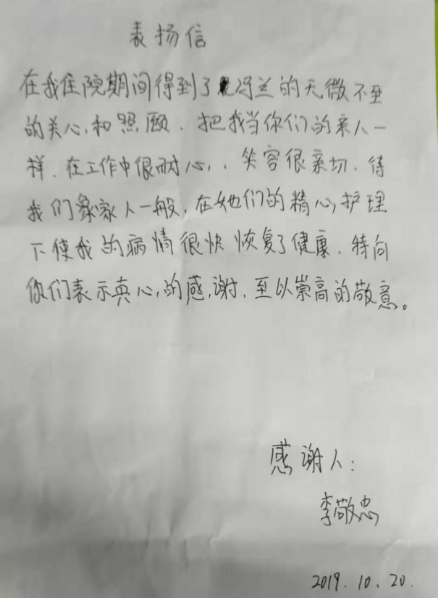 表扬信
在我住院期间得到了冯兰的无微不至
的关心和照顾、把我当你们的亲人一
样、在工作中很耐心,、笑容很亲切、待
我们象家人一般,在她们的精心护理
下使我的病情很快恢复了健康、特向
你们表示真心的感谢、至以崇高的敬意。
感谢人:
李敬忠
2019.10.20.